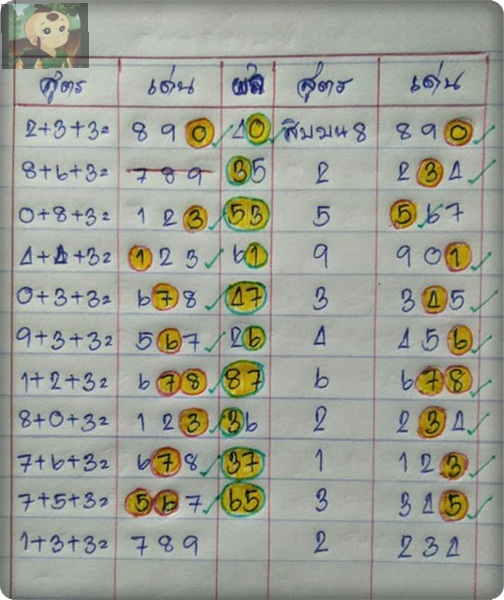 สูตร เด่น ผล สูตร เด่น
2+3+3= 8 9 0 40 สิบบน 8 8 9 0
8+6+3= 7 8 9 35 2 2 3 4
0+8+3= 1 2 3 53 5 5 6 7
4+4+3= 1 2 3 61 9 9 0 1
0+3+3= 6 7 8 47 3 3 4 5
9+3+3= 5 6 7 26 4 4 5 6
1+2+3= 6 7 8 87 6 6 7 8
8+0+3= 1 2 3 36 2 2 3 4
7+6+3= 6 7 8 37 1 1 2 3
7+5+3= 5 6 7 65 3 3 4 5
1+3+3= 7 8 9 2 2 3 4